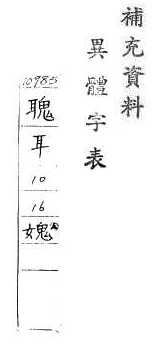 補充資料
異體字表
10985
聭
耳
10
16
媿